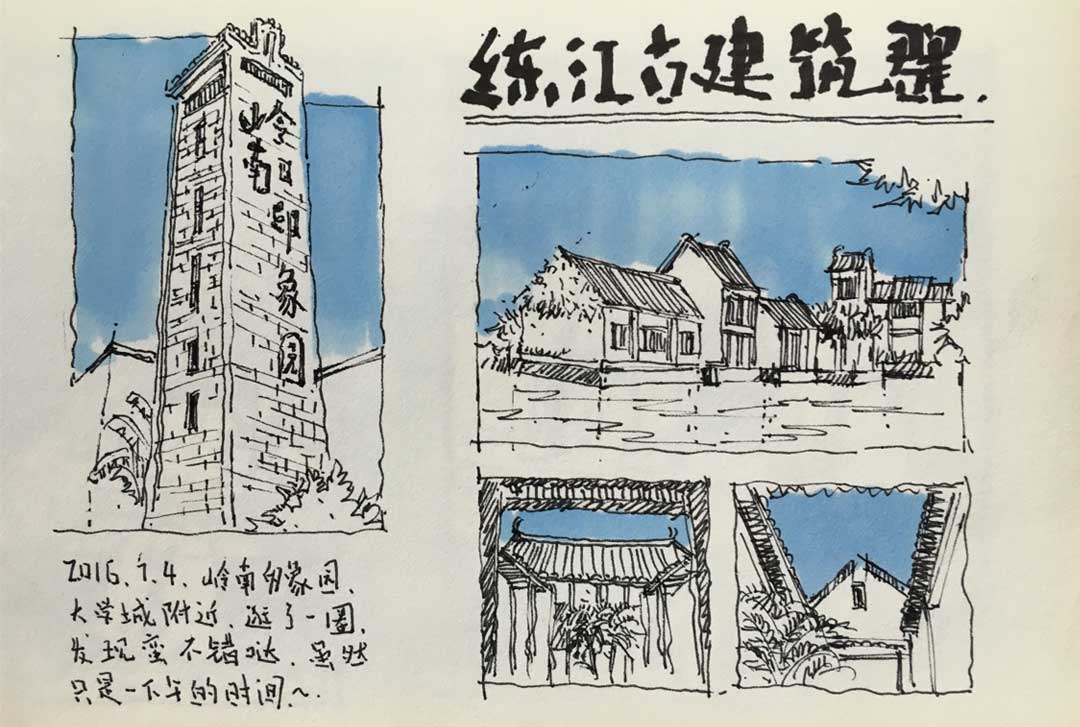 练江古建筑
岭南印象园
2016.7.4.岭南印象园、
大学城附近、逛了一圈、
发现蛮不错哒、虽然
只是一下午的时间~.